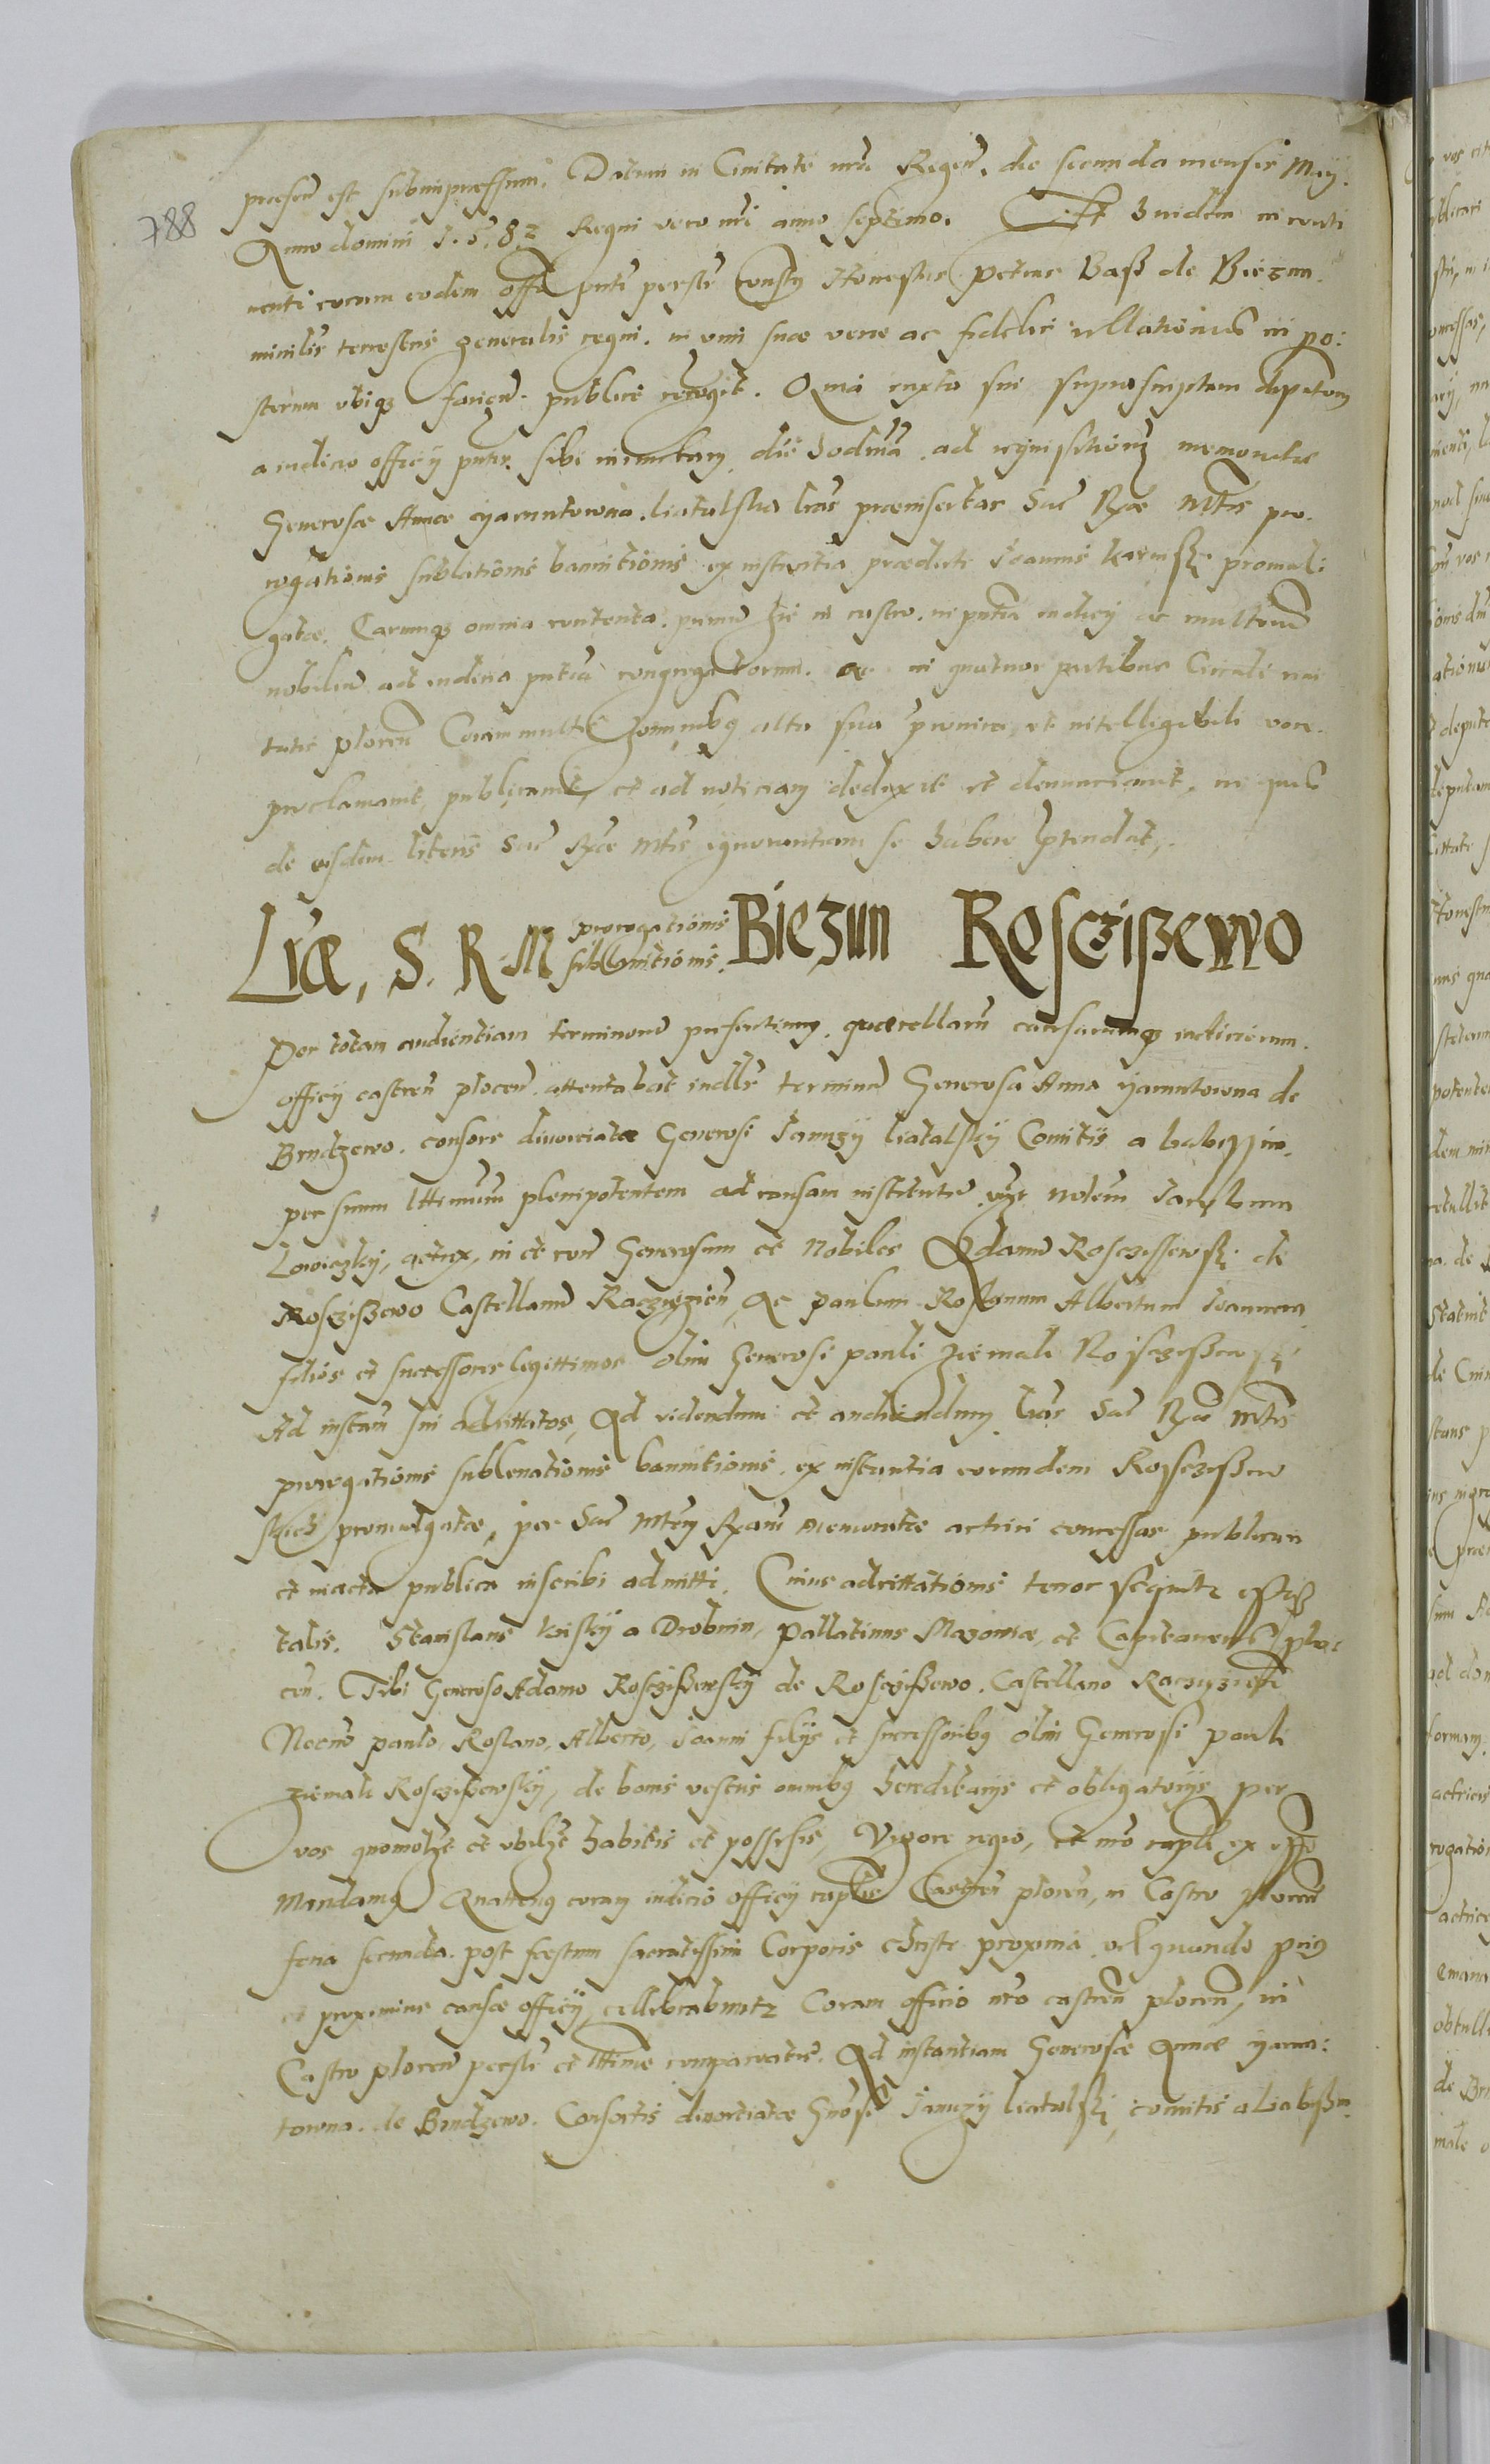 788
praesen est subimpressum. Datum in Civitate nra Regen. die secunda mensis Maij.
Anno domini 1.5.82 Regni vero nri anno septimo. Et ibidem in conti
nenti coram eodem offo pnti perslr constg Honestus Petrus Baß de Biezun
minilis terrestris generalis regni. in vim suae verae ac fidelis rellationis in po:
sterum ubiqz faciend. publice recogt. Quia iuxta sui suprascriptam deputem
a iudicio officij pntis sibi iniunctam die hodrna ad requisitionem memoratae
Generosae Annae yarnutowna liatalska lras praeinsertas Sac Rgae Mttis pro.
rogationis sublationis bannitionis ex instantia praedicti Joannis karnsky promul:
gatae. Earumqz omnia contenta. primu hic in castro. in pntia iudicij ac multorum
nobiliu ad iudicia pntia congregatorum. ac in quatuor partibus Circuli civi
tatis plocen Coram multis hominibg alta sua praeconica et intelligibili voce
proclamavit, publicavit, et ad noticiam deduxit et denunciavit, ne quis
de eisdem literis Sac Rgae Mttis ignorantiam se habere ptendat.
Lrae, S. R. M prorogationis sublevationis. Biezun Rosczißewo
Per totam audientiam terminorum praesentium querellarum causarumqz iudiciorum
officij castren plocen attentabat iudlr terminu Generosa Anna yarnutowna de
Brudzewo. consors divorciata Generosi Januzij liatalskij Comitis a Labiszin.
per suum lttimum plenipotentem ad causam institutu vigr nobilem Jaroslaum
Lowiczky, actrix, in et con Generosum et Nobiles Adamu Rosczissewski de
Rosczißewo Castellanu Raczyazien, Ac Paulum Roslanum Albertum Joannem
filios et successores legittimos olim Generosi pauli ziemak Rosczißewski
Ad instam sui adcittatos, Ad videndum et audiendum lras Sac Rgae Mttis
prorogationis sublevationis bannitionis ex instantia eorundem Rosczißew
skich promulgatae, per Sac Mttem Rgam memoratae actrici concessas publicari
et in acta publica inscribi admitti. Cuius adcittationis tenor sequitr estqz
talis. Stanislaus krisky a Drobnin, Pallatinus Mazoviae, et Capitaneus ploc
cen. Tibi Generoso Adamo Rosczißewsky de Rosczißewo. Castellano Raczyazien
Necno paulo, Roslano, Alberto, Joanni filijs et successoribg olim Generosi pauli
ziemak Rosczißewsky, de bonis vestris omnibg hereditarijs et obligatorijs per
vos quomolzt et ubilzt habitis et possessis, Vigore regio, et nro caple ex offo
Mandamg Quateng coram iudicio officij caplis Castren plocen, in Castro plocen
feria secunda post festum sacratissimi Corporis Christi proxima vel quando prig
et proximius causae officij cellebrabuntr Coram officio nro castren plocen, in
Castro plocen perslr et lttime compareatis. Ad instantiam Generosae Annae yarnu:
towna de Brudzewo. Consortis divortiatae Gnosi Januzij liatalski comitis a Liabißin